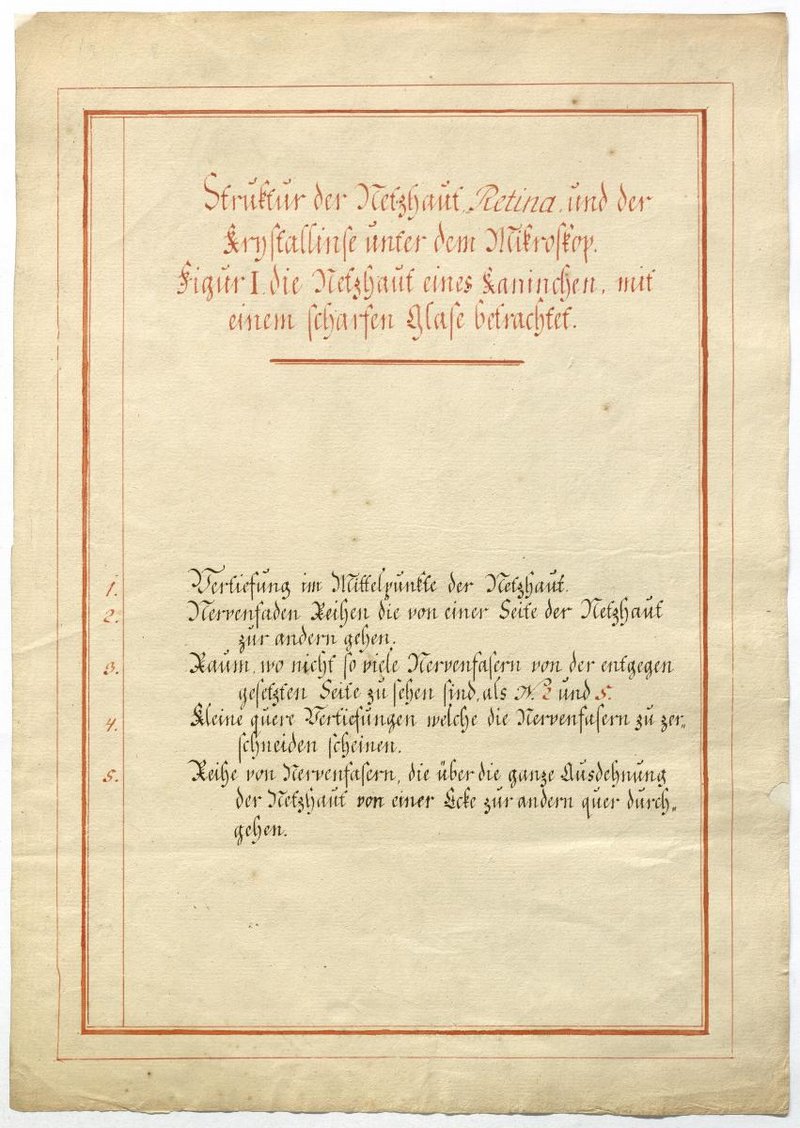 Struktur der Netzhaut, Retina, und der
Krystallinse unter dem Mikroskop.
Figur I. die Netzhaut eines Kaninchen, mit
einem scharfen Glase betrachtet.
1. Vertiefung im Mittelpunkte der Netzhaut.
2. Nervenfaden Reihen die von einer Seite der Netzhaut
zur andern gehen.
3. Raum, wo nicht so viele Nervenfasern von der entgegen
gesetzten Seite zu sehen sind, als No. 2 und 5.
4. Kleine quere Vertiefungen welche die Nervenfasern zu zer-
schneiden scheinen.
5. Reihe von Nervenfasern, die über die ganze Ausdehnung
der Netzhaut von einer Ecke zur andern quer durch-
gehen.